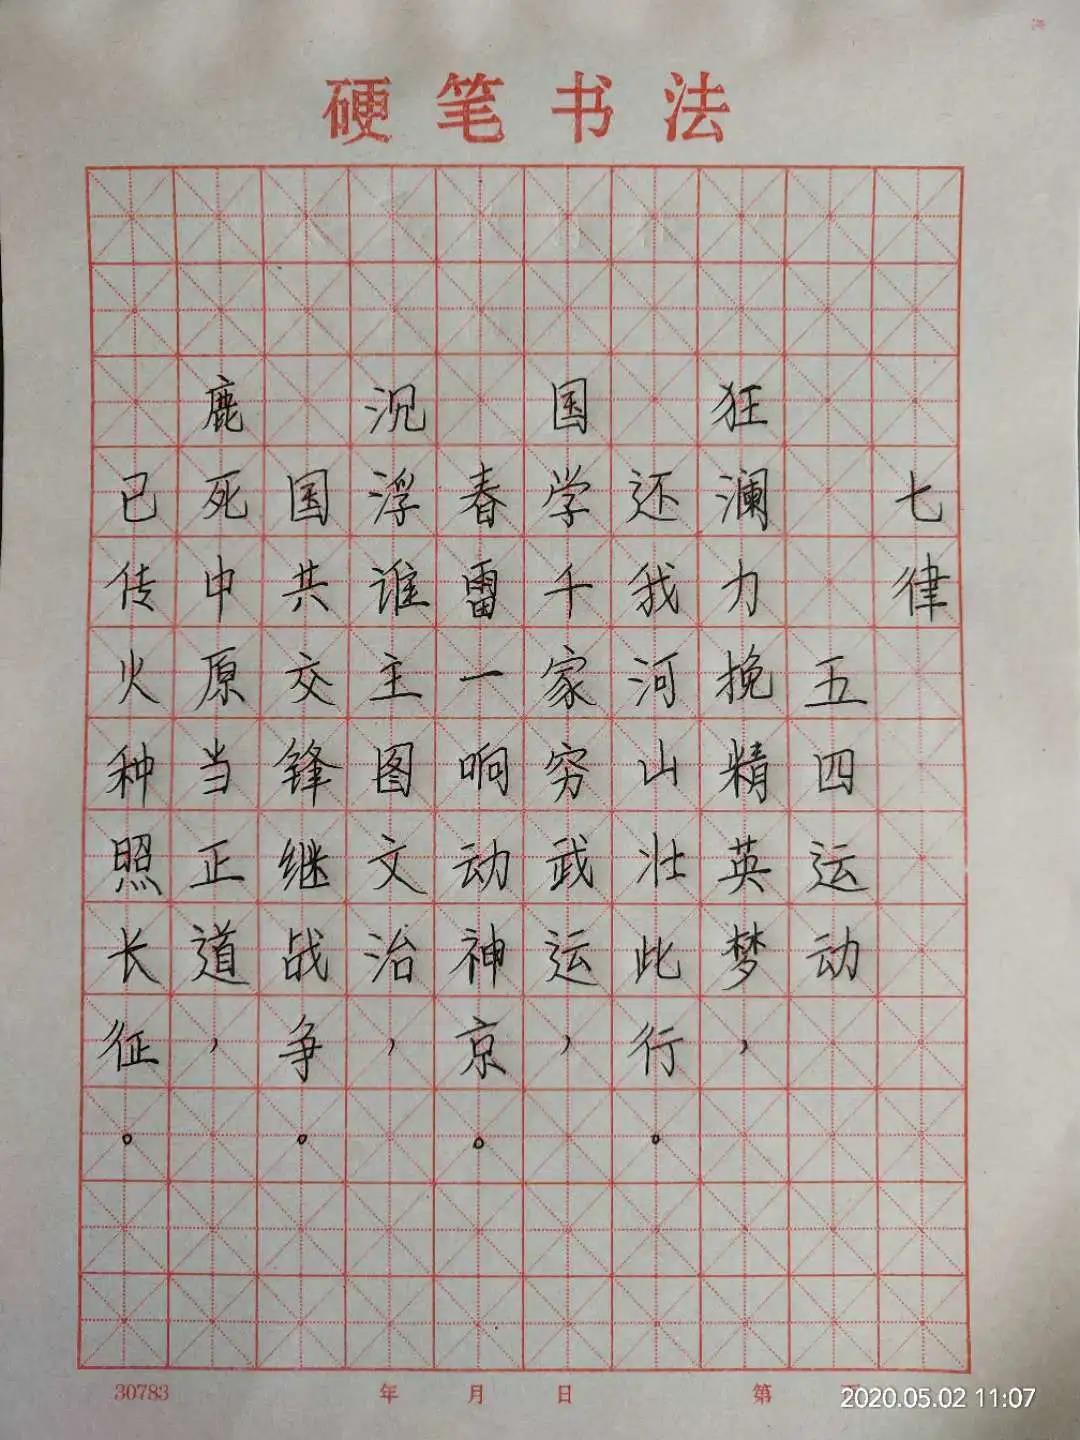 硬笔书法
七律
五四运动
狂澜力挽精英梦，
还我河山壮此行。
国学千家穷武运，
春雷一响动神京。
沉浮谁主图文治，
国共交锋继战争。
鹿死中原当正道，
已传火种照长征。
30783 年 月 日 第
2020.05.02 11:07